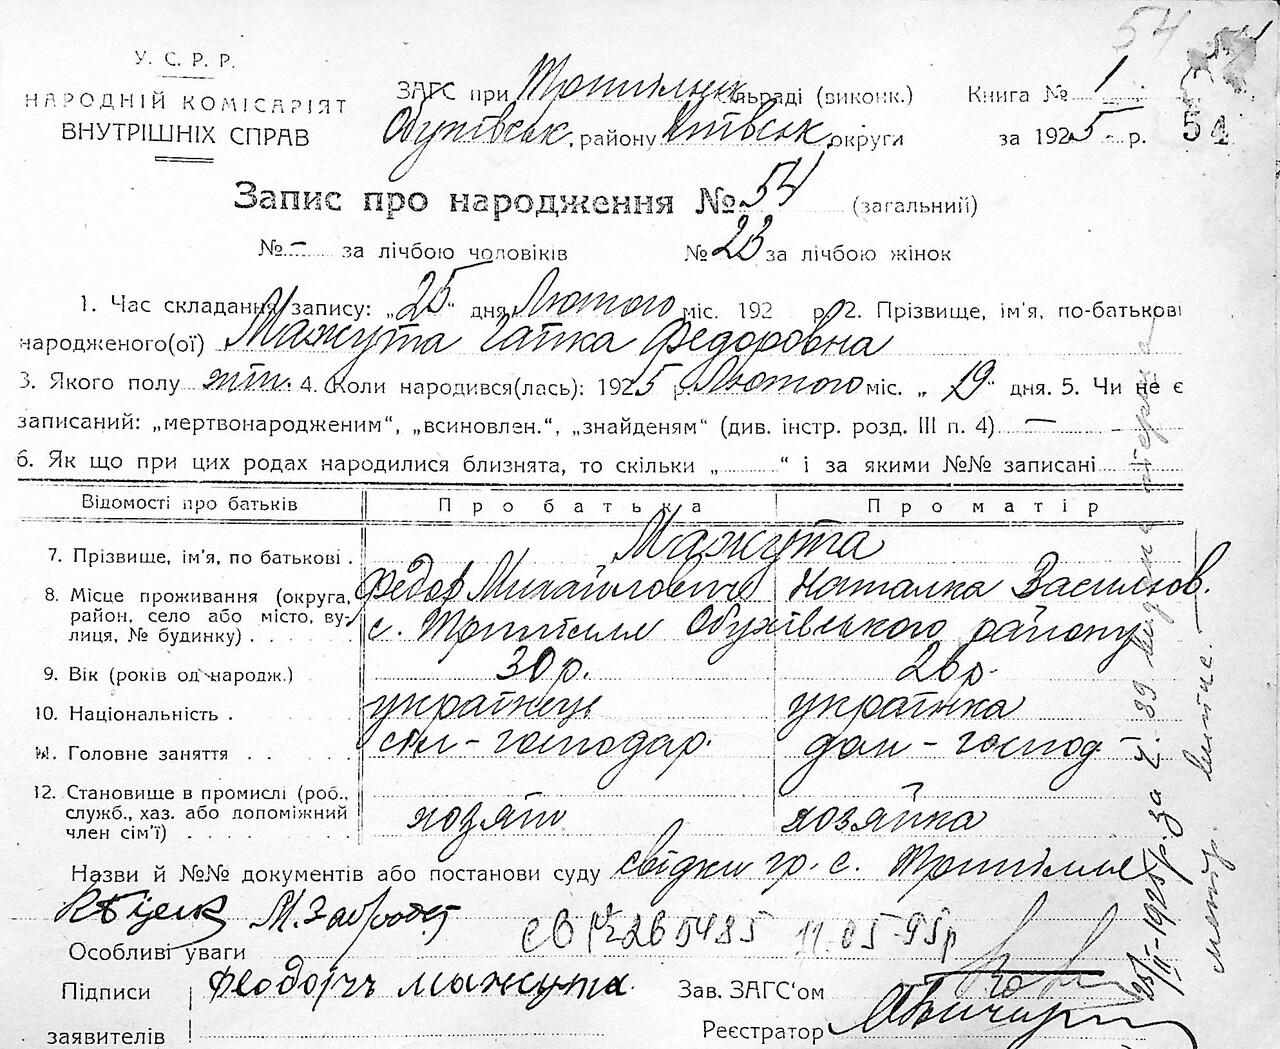 54
У. С. Р. Р.
НАРОДНІЙ КОМІСАРІЯТ
ВНУТРІШНІХ СПРАВ
ЗАГС при Трипільск. сільраді (виконк.) Книга № 1
Обухівськ. району Київськ. округи за 1925 р. 54
Запис про народження № 54 (загальний)
№ – за лічбою чоловіків № 23 за лічбою жінок
1. Час складання запису: „25“ дня Лютого міс. 192 р. 2. Прізвище, ім'я, по-батькові
народженого(ої) Мажута Гапка Федоровна
3. Якого полу жін. 4. Коли народився(лась): 1925 р. Лютого міс. „19“ дня. 5. Чи не є
записаний: „мертвонародженим“, „всиновлен.“, „знайденям“ (див. інстр. розд. III п. 4) —
6. Як що при цих родах народилися близнята, то скільки „ “ і за якими №№ записані —
Відомості про батьків Про батька Про матір
7. Прізвище, ім'я, по батькові . Мажута
Федор Михайлович Наталка Василюв.
8. Місце проживання (округа, район, село або місто, вулиця, № будинку) . . . . с. Трипілля Обухівського району
9. Вік (років од народж.) 30 р. 26 р.
10. Національність . українець українка
11. Головне заняття . . . сіл-господар. дом-господ
12. Становище в промислі (роб., служб., хаз. або допоміжний член сім'ї) . . . . . хозяїн хозяйка
Назви й №№ документів або постанови суду свідки гр. с. Трипілля
М. Заброда
Особливі уваги 265485 11-05-95р
Підписи Феодоїчъ мажута Зав. ЗАГС'ом
заявителів Реєстратор